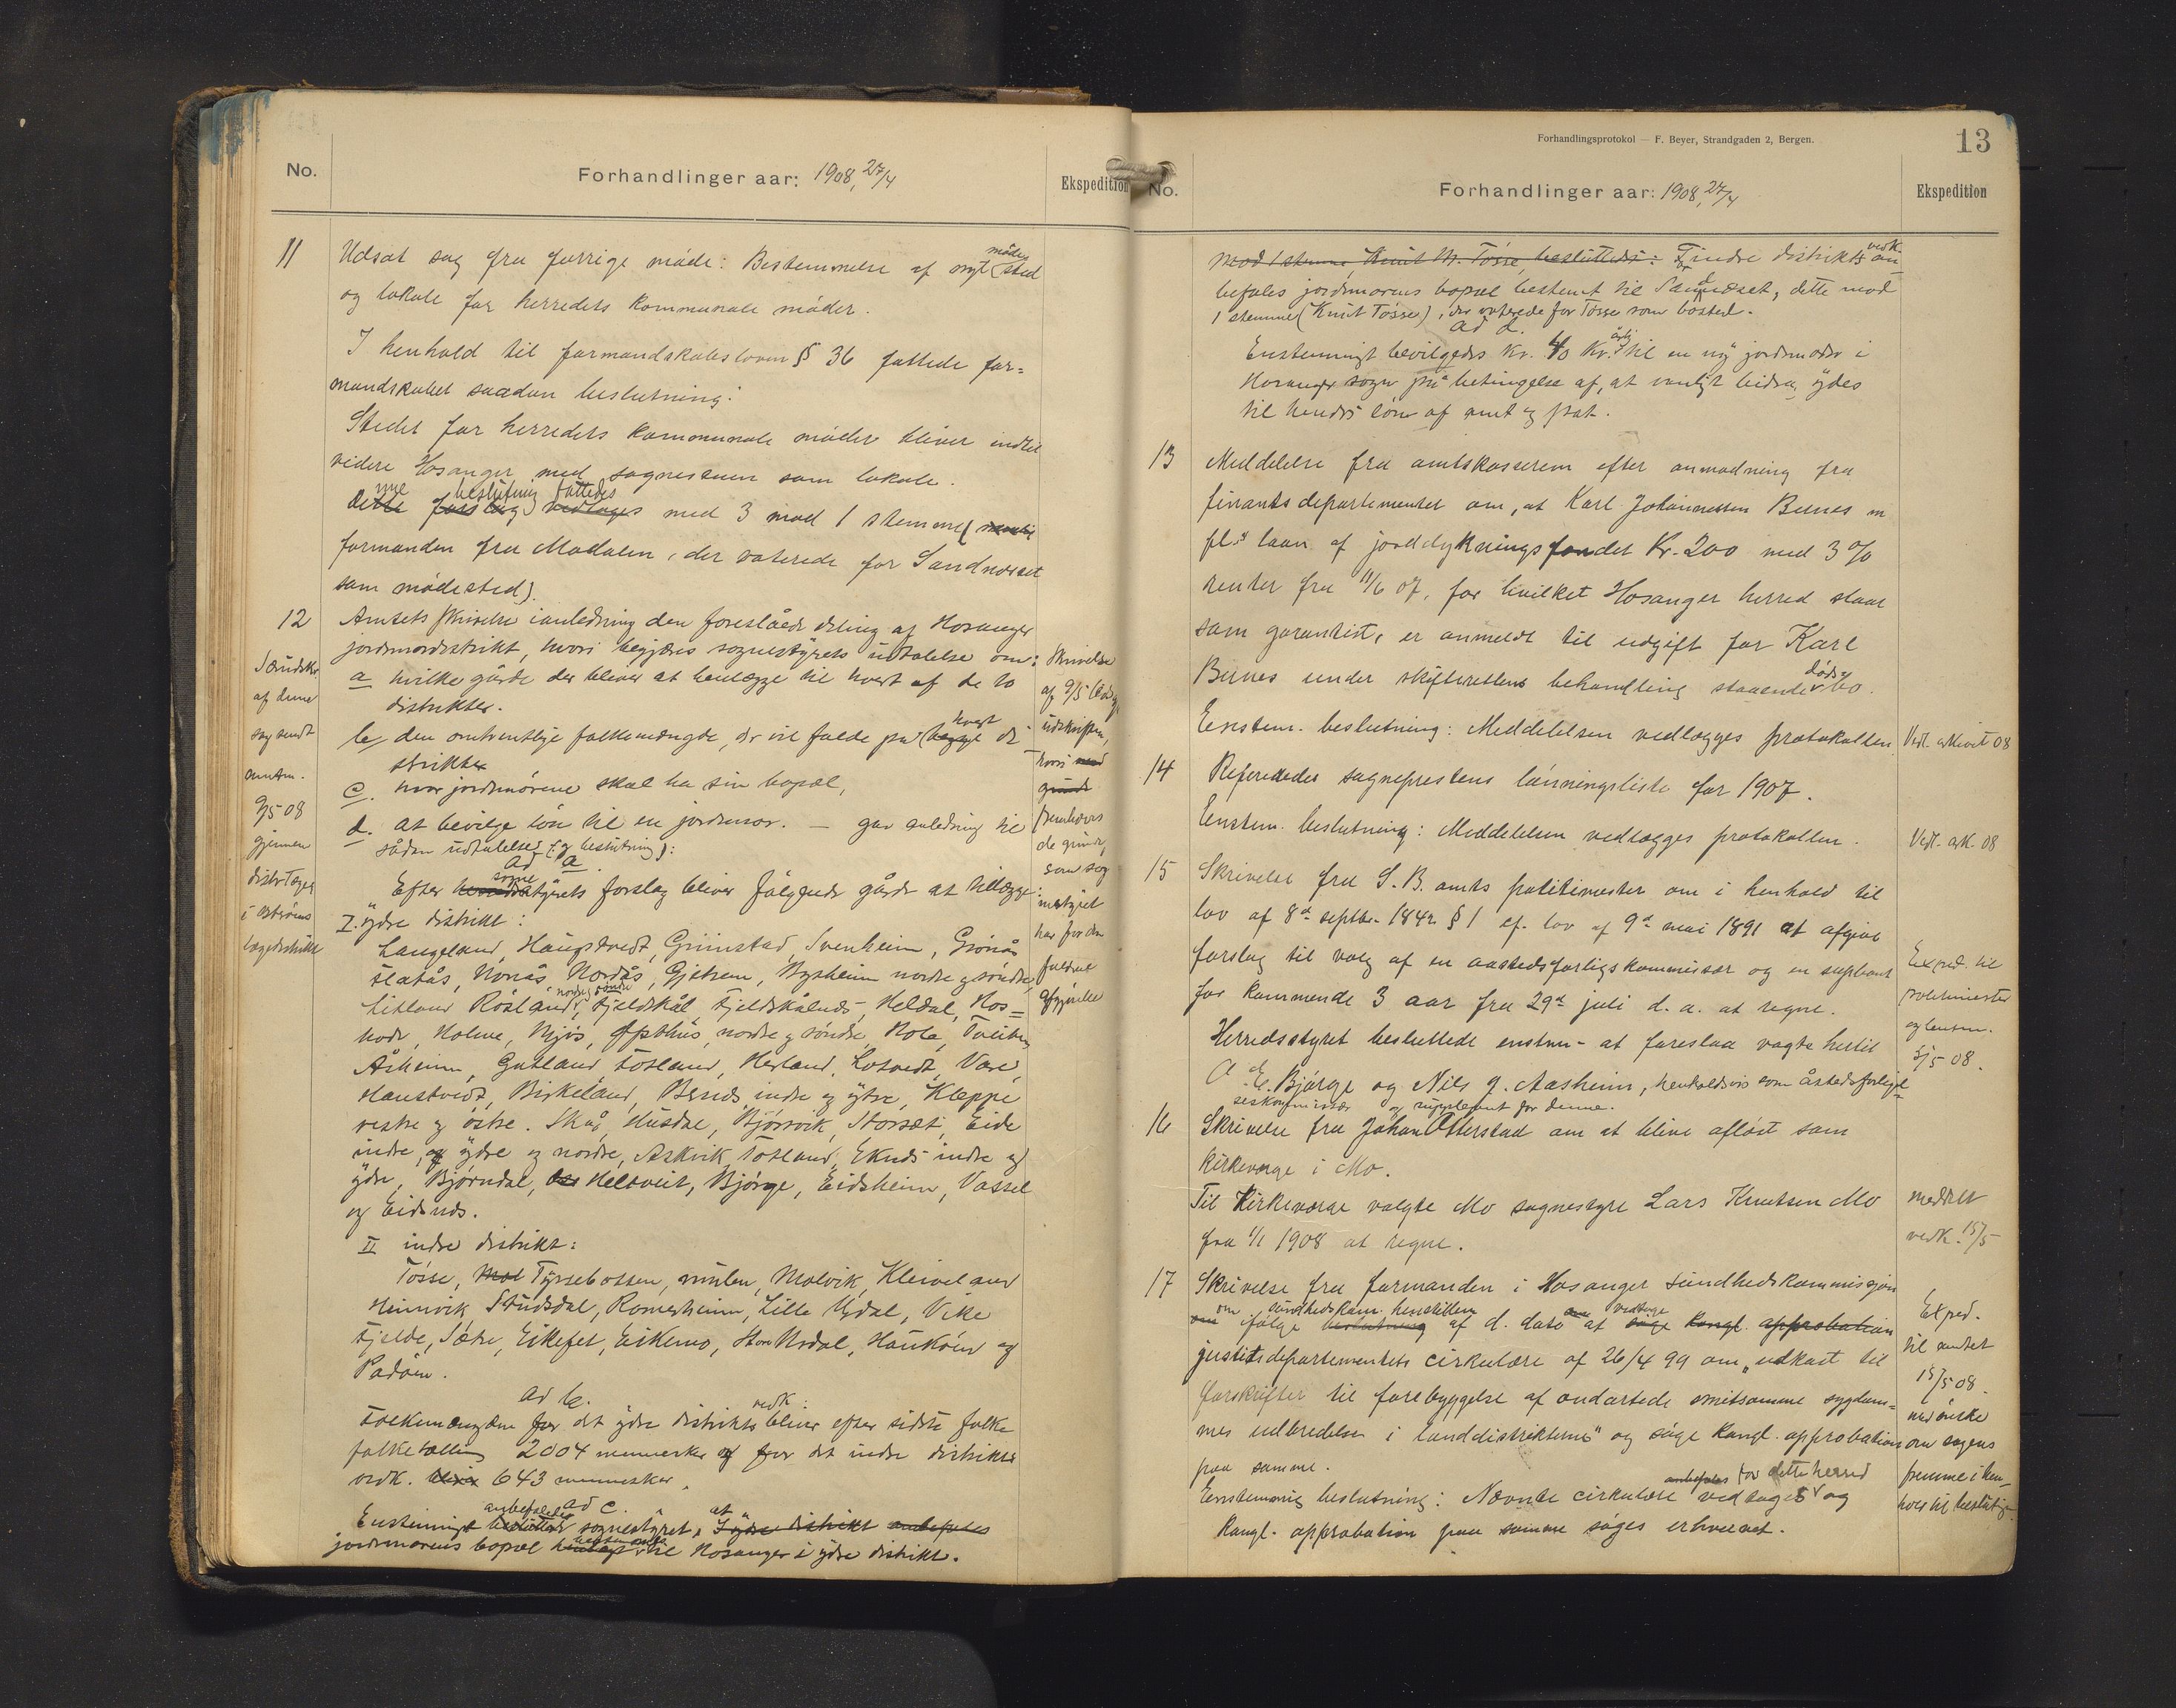 No.
Forhandlinger aar: 1908, 27/4
Ekspedition
11
Udsat sag fra forrige møde: Bestemmelse af nyt mødested
og lokale for herredets kommunale møder.
I henhold til formandskabsloven § 36 fattede for=
mandskabet saadan beslutning:
Stedet for herredets kommunale møder bliver indtil
videre Hosanger med sognestuen som lokale.
Denne beslutning fattedes med 3 mod 1 stemme (
formanden fra Modalen, der voterede for Sandnæset
som mødested).
12
Amtets skrivelse i anledning den foreslåede deling af Hosanger
jordmordistrikt, hvori begjæres sognestyrets udtalelse om:
a hvilke gårde der bliver at henlægge til hvert af de to
distrikter.
b, den omtrentlige folkemængde, der vil falde på hvert di
strikt
c. hvor jordmørene skal ha sin bopæl,
d. at bevilge løn til en jordmor. — gav anledning til
sådan udtalelse (og beslutning):
ad a.
Efter sognestyrets forslag bliver følgende gårde at tillægge:
I. ydre distrikt:
Langeland, Haugstvedt, Grimstad, Svenheim, Grønås
Flatås, Nonås, Nordås, Gjetrem, Bysheim nordre og søndre,
Litland Røsland, nordre og søndre, Fjeldskål, Fjeldskålnes, Heldal, Hos=
node, Holme, Mjøs, Opsthus, nordre og søndre, Hole, Tveiten
Åsheim, Gutland Fotland, Herland, Lotvedt, Vare,
Hanstvedt, Birkeland, Bernes indre og ytre, Kleppe
vestre og østre. Skår, Husdal, Bjørsvik, Storset, Eide
indre, ydre og nordre, Askvik, Totland, Eknes indre og
ydre, Bjørndal, Heltveit, Bjørge, Eidsheim, Vassel
og Eidsnes.
II indre distrikt:
Tøsse, Tyssebotten, mulen, Molvik, Kleiveland
Heimvik Studsdal, Romerheim, Lille Urdal, Vike
Fjelde, Sætre, Eikefet, Eikemo, Store Urdal, Haukøen og
Padøen.
ad b.
Folkemængden for det ydre distrikts vedk. bliver efter sidste folke
folketælling 2004 mennesker og for det indre distrikts
vedk. 643 mennesker.
ad c.
Enstemmigt anbefaledes sognestyret, at
jordmorens bopæl bestemmes til Hosanger i ydre distrikt.
Særudskr.
af denne
sag sendt
amtm.
9/5 08
gjennem
distr læge
i Ostrøens
lægedistrikt
Skrivelse
af 9/5
udskriften,
hvori
fremhæves
de grunde,
som sog
nestyret
har for den
faldne
afgjørelse
Forhandlingsprotokol — F. Beyer, Strandgaden 2, Bergen.
13
No.
Forhandlinger aar: 1908, 27/4
Ekspedition
mod 1 stemme, Knut M. Tøsse, besluttedes: For indre distrikts vedk. an
befales jordmorens bopæl bestemt til Sandnæset, dette mod
1 stemme (Knut Tøsse), der voterede for Tøsse som bosted.
ad d.
Enstemmigt bevilgedes kr. 40 kr. årlig til en ny jordmoder i
Hosanger sogn på betingelse af, at vanligt bidrag ydes
til hendes løn af amt og stat.
13
Meddelelse fra amtskasserern efter anmodning fra
finantsdepartementet om, at Karl Johannessen Bernes m
fl.s laan af jorddyrkningsfondet Kr. 200 med 3 %
renter fra 11/6 07, for hvilket Hosanger herred staar
som garantist, er anmeldt til udgift for Karl
Bernes under skifterettens behandling staaende dødsbo.
Enstem. beslutning: Meddelelsen vedlægges protokollen
Vedl. arkivet 08
14
Refereredes sogneprestens lønningsliste for 1907.
Enstem. beslutning: Meddelelsen vedlægges protokollen.
Vedl. ark. 08
15
Skrivelse fra S. B. amts politimester om i henhold til
lov af 8de septbr. 1842 § 1 cf. lov af 9de mai 1891 at afgive
forslag til valg af en aastedsforligskommissær og en supleant
for kommende 3 aar fra 29de juli d. a. at regne.
Herredsstyret besluttede enstem. at foreslaa valgte hertil
A. E. Bjørge og Nils J. Aasheim, henholdsvis som åstedsforligel=
seskommissær og suppleant for denne.
Exped. til
politimester
og lensm.
5/5 08.
16
Skrivelse fra Johan Otterstad om at blive afløst som
kirkeværge i Mo.
Til Kirkeværge valgte Mo sognestyre Lars Knutsen Mo
fra 1/1 1908 at regne.
meddelt
vedk. 15/5
17
Skrivelse fra formanden i Hosanger sundhedskommissjon
om ifølge sundhedskom. henstillen af d. dato at vedtage
justitsdepartementets cirkulære af 26/4 99 om „udkast til
forskrifter til forebyggelse af ondartede smitsomme sygdom=
mes udbredelse i landdistrikterne" og søge kongl. approbation
paa samme.
Enstemmig beslutning: Nævnte cirkulære vedtages for dette herred og
kongl. approbation paa samme søges erhvervet.
Exped.
til amtet
15/5 08.
med ønske
om sagens
fremme i hen
hold til beslutn.